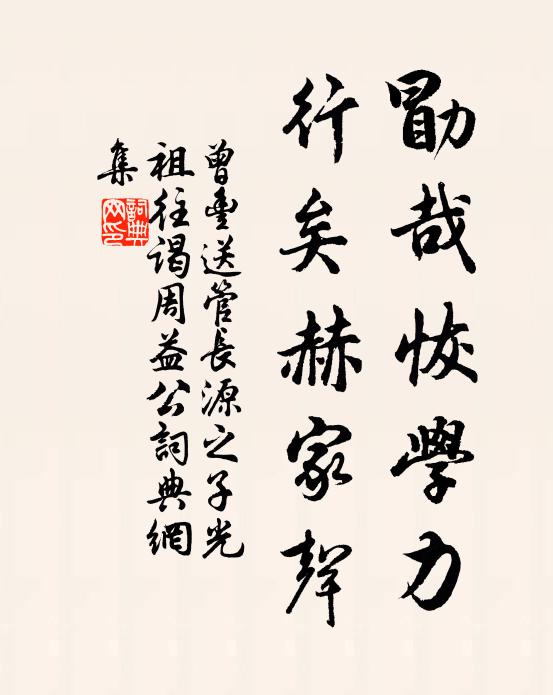 勖哉恢學力
行矣赫家聲
曾豊送管長源之子光
祖往謁周益公詞典網
集
詞典網印